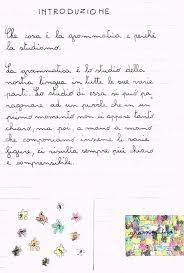 INTRODUZIONE
Che cosa è la grammatica e perché
la studiamo.
La grammatica è lo studio della
nostra lingua in tutte le sue varie
parti. Lo studio di essa si può pa
ragonare ad un puzzle che in un
primo momento non ci appare tanto
chiaro, ma poi, a mano a mano
che componiamo insieme le varie
figure, ci risulta sempre più chiaro
e comprensibile.